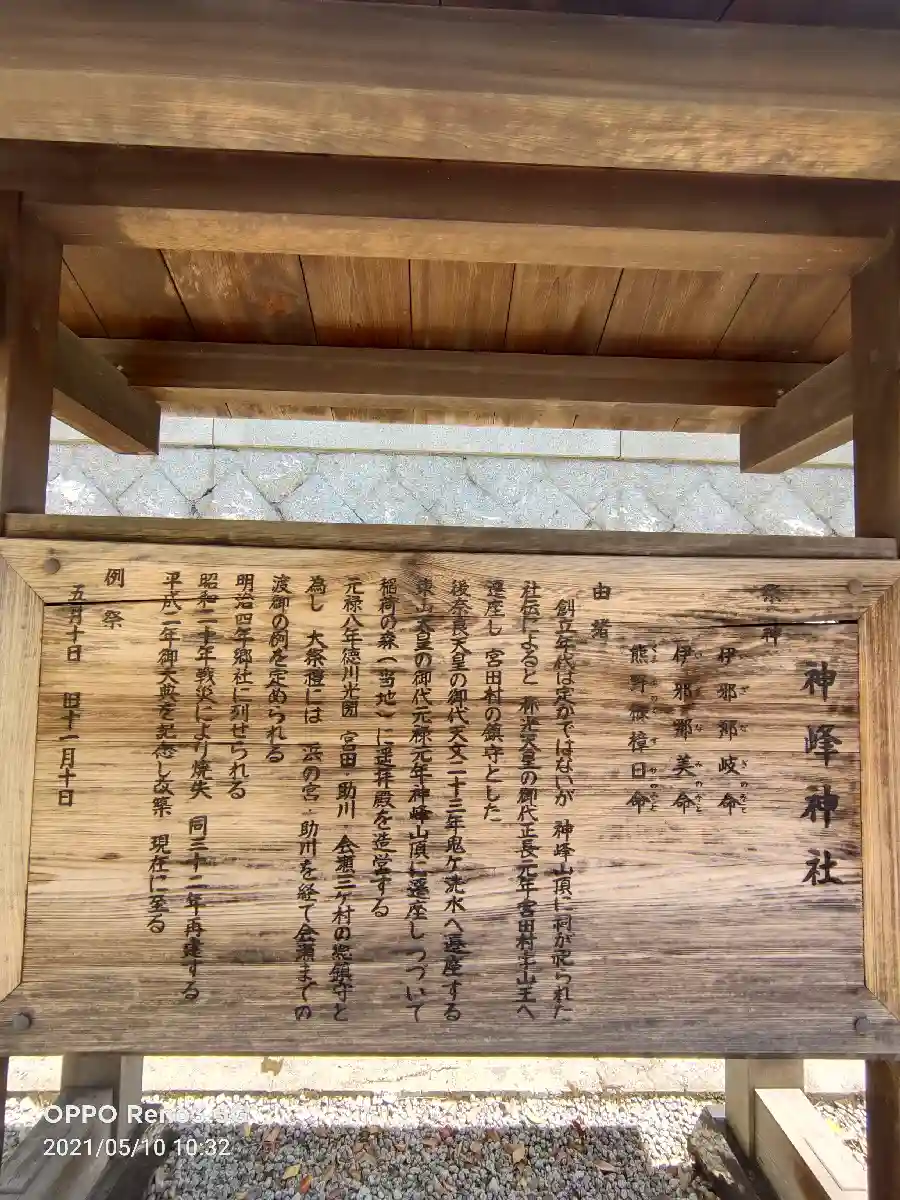 神峰神社
祭神
伊邪那岐命
ぎ な ぎのみこと
伊邪那美命
い な みのみこと
熊野樟日命
由緒
創立年代は定かではないが 神峰山頂に祠が祀られた
社伝によると 称光天皇の御代正長元年宮田村 山王へ
遷座し 宮田村の鎮守とした
後奈良天皇の御代天文二十三年鬼ケ洗水へ遷座する
東山天皇の御代元禄元年神峰山頂に遷座し つづいて
稲荷の森(当地)に遥拝殿を造営する
元禄八年徳川光圀 宮田・助川・会瀬三ケ村の惣鎮守と
為し 大祭禮には 浜の宮・助川を経て会瀬までの
渡御の例を定められる
明治四年郷社に列せられる
昭和二十年戦災により焼失 同三十二年再建する
平成二年御大典を記念し改築 現在に至る
例祭
五月十日 旧十一月十日
OPPO Reno
2021/05/10 10:32